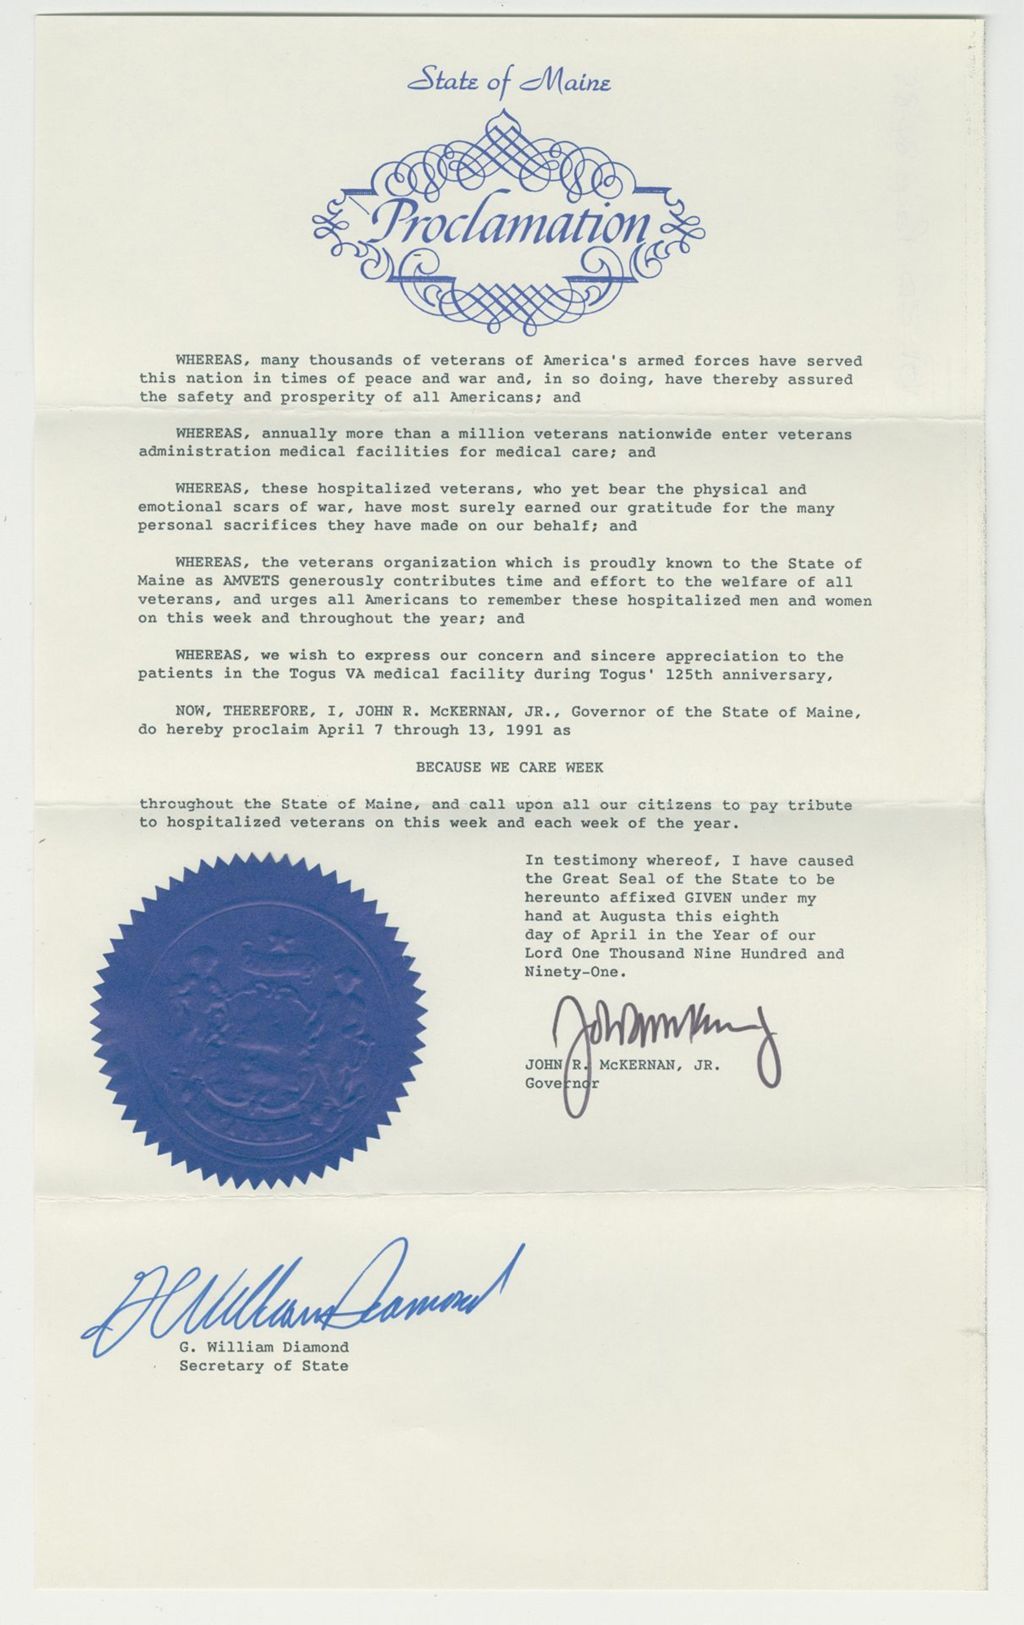 State of Maine
Proclamation
WHEREAS, many thousands of veterans of America's armed forces have served
this nation in times of peace and war and, in so doing, have thereby assured
the safety and prosperity of all Americans; and
WHEREAS, annually more than a million veterans nationwide enter veterans
administration medical facilities for medical care; and
WHEREAS, these hospitalized veterans, who yet bear the physical and
emotional scars of war, have most surely earned our gratitude for the many
personal sacrifices they have made on our behalf; and
WHEREAS, the veterans organization which is proudly known to the State of
Maine as AMVETS generously contributes time and effort to the welfare of all
veterans, and urges all Americans to remember these hospitalized men and women
on this week and throughout the year; and
WHEREAS, we wish to express our concern and sincere appreciation to the
patients in the Togus VA medical facility during Togus' 125th anniversary,
NOW, THEREFORE, I, JOHN R. McKERNAN, JR., Governor of the State of Maine,
do hereby proclaim April 7 through 13, 1991 as
BECAUSE WE CARE WEEK
throughout the State of Maine, and call upon all our citizens to pay tribute
to hospitalized veterans on this week and each week of the year.
In testimony whereof, I have caused
the Great Seal of the State to be
hereunto affixed GIVEN under my
hand at Augusta this eighth
day of April in the Year of our
Lord One Thousand Nine Hundred and
Ninety-One.
JOHN R. McKERNAN, JR.
Governor
G William Diamond
G. William Diamond
Secretary of State